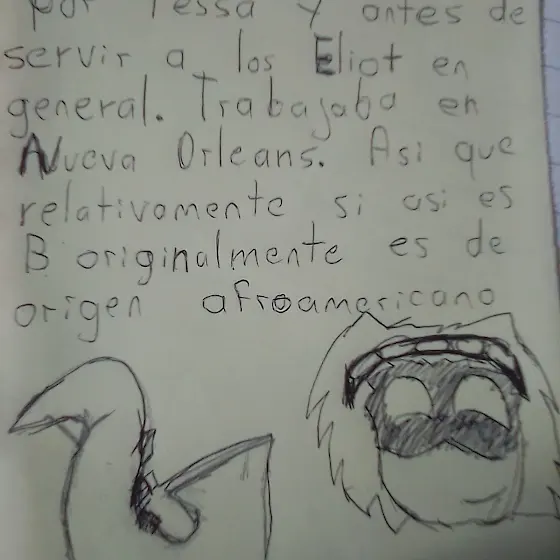 por Tessa y antes de
servir a los Eliot en
general. Trabajaba en
Nueva Orleans. Asi que
relativamente si asi es
B originalmente es de
origen afroamericano